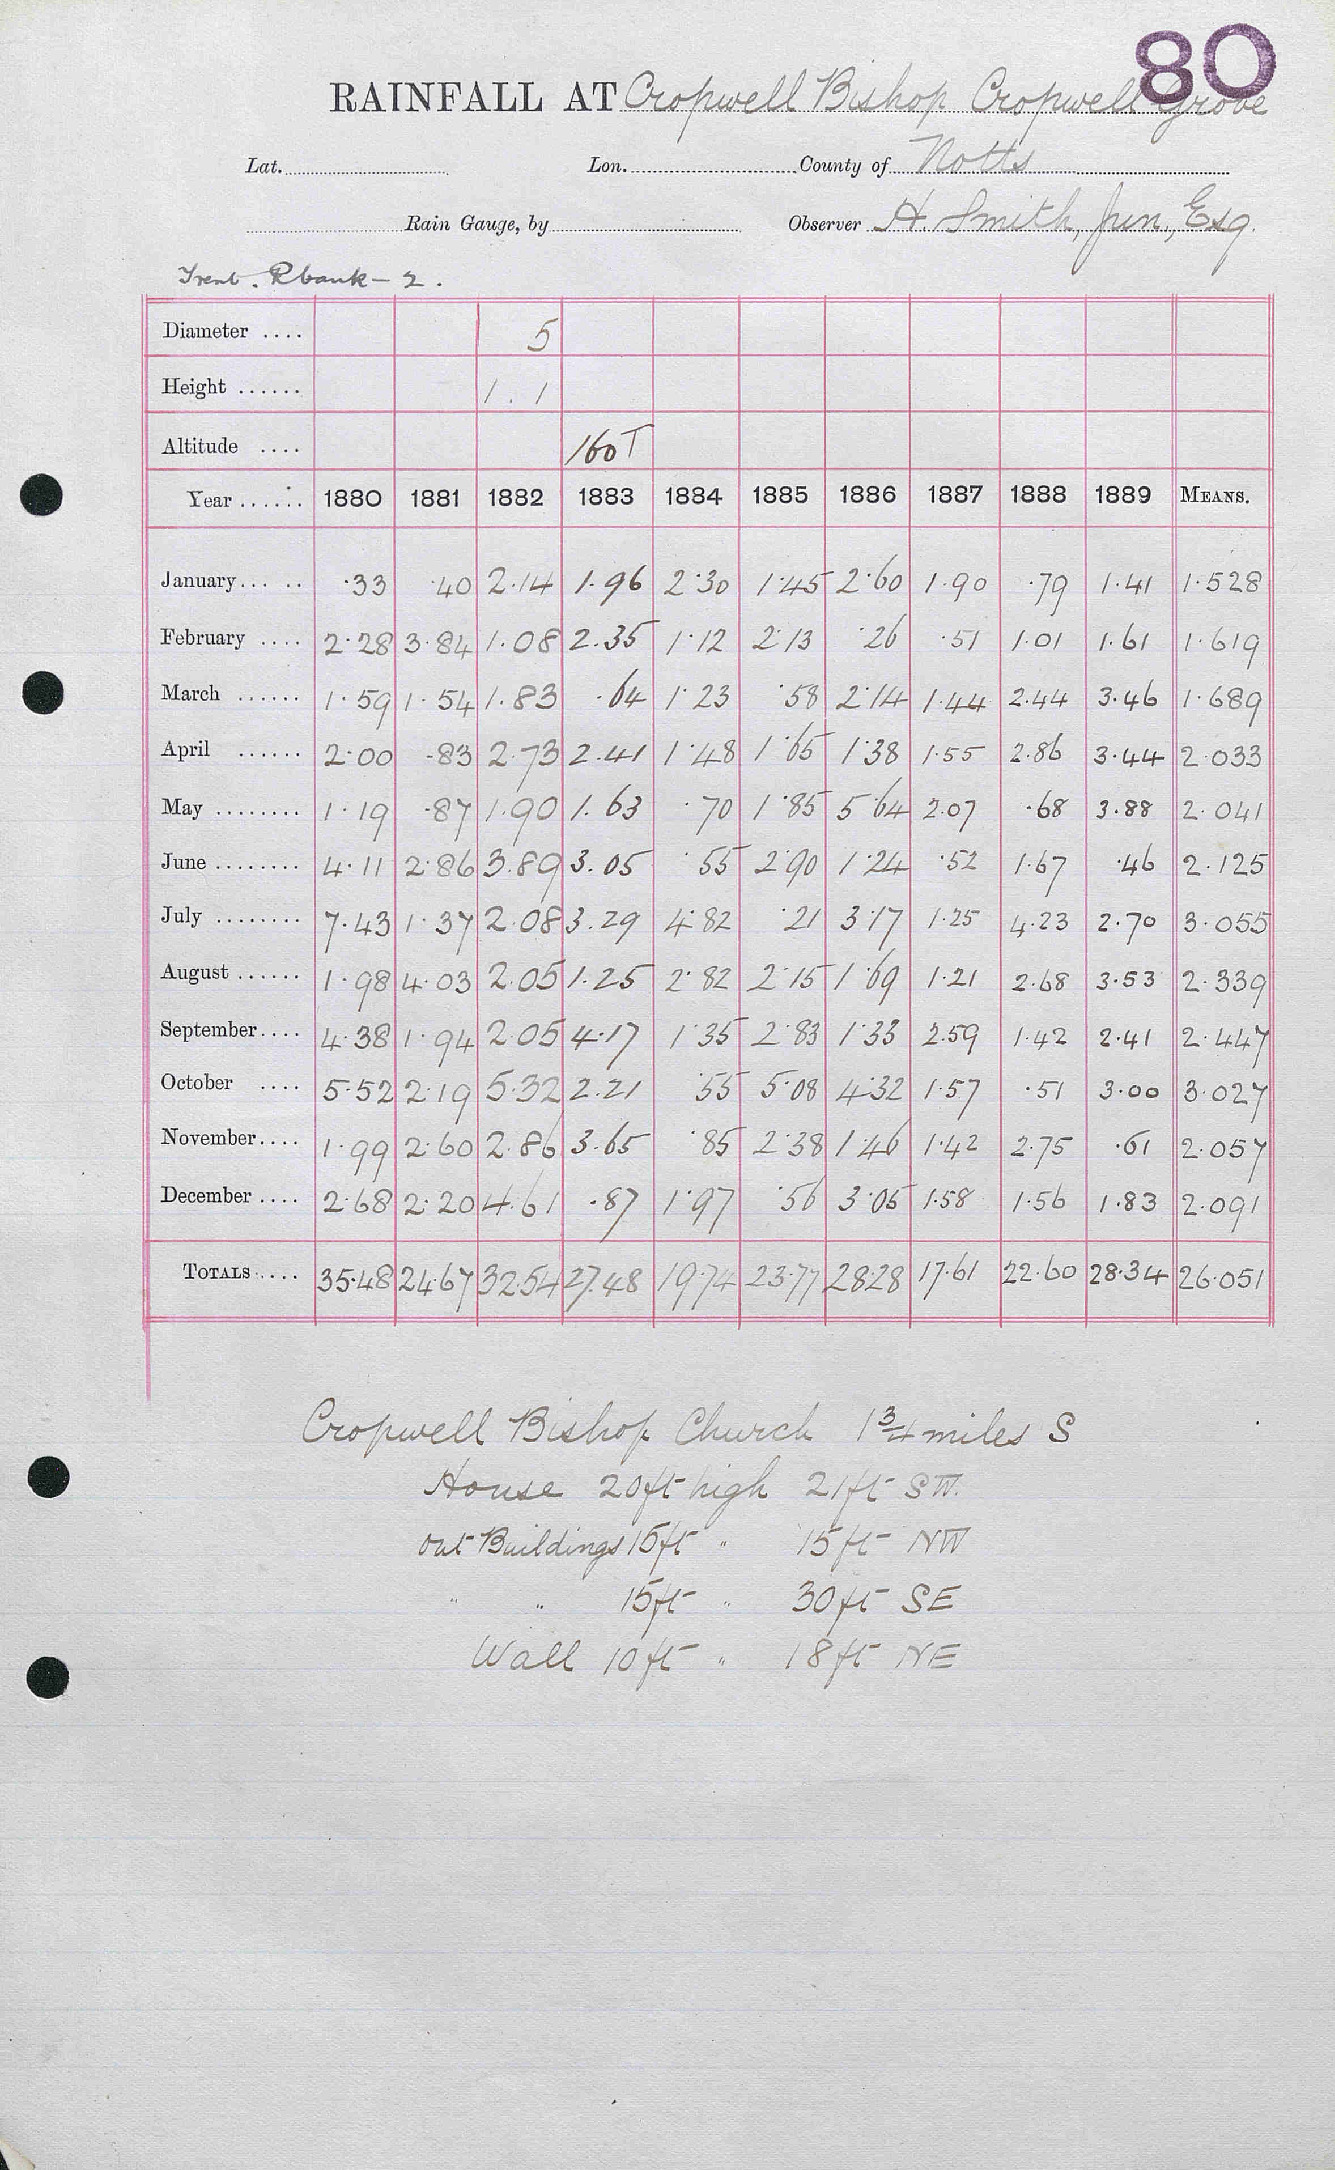 80
RAINFALL AT Cropwell Bishop Cropwell Grove
Lat. Lon. County of Notts
Rain Gauge, by Observer H. Smith, Jun., Esq.
Trent. R bank - 2.
Diameter .... 5
Height ...... 1 . 1
Altitude .... 160 T
Year ...... 1880 1881 1882 1883 1884 1885 1886 1887 1888 1889 MEANS.
January... .. ·33 ·40 2·14 1·96 2·30 1·45 2·60 1·90 ·79 1·41 1·528
February .... 2·28 3·84 1·08 2·35 1·12 2·13 ·26 ·51 1·01 1·61 1·619
March ...... 1·59 1·54 1·83 ·64 1·23 ·58 2·14 1·44 2·44 3·46 1·689
April ...... 2·00 ·83 2·73 2·41 1·48 1·65 1·38 1·55 2·86 3·44 2·033
May ........ 1·19 ·87 1·90 1·63 ·70 1·85 5·64 2·07 ·68 3·88 2·041
June ........ 4·11 2·86 3·89 3·05 ·55 2·90 1·24 ·52 1·67 ·46 2·125
July ........ 7·43 1·37 2·08 3·29 4·82 ·21 3·17 1·25 4·23 2·70 3·055
August ...... 1·98 4·03 2·05 1·25 2·82 2·15 1·69 1·21 2·68 3·53 2·339
September.... 4·38 1·94 2·05 4·17 1·35 2·83 1·33 2·59 1·42 2·41 2·447
October .... 5·52 2·19 5·32 2·21 ·55 5·08 4·32 1·57 ·51 3·00 3·027
November.... 1·99 2·60 2·86 3·65 ·85 2·38 1·46 1·42 2·75 ·61 2·057
December .... 2·68 2·20 4·61 ·87 1·97 ·56 3·05 1·58 1·56 1·83 2·091
TOTALS .... 35·48 24·67 32·54 27·48 19·74 23·77 28·28 17·61 22·60 28·34 26·051
Cropwell Bishop Church 1¾ miles S
House 20ft high 21ft SW.
out Buildings 15ft " 15ft NW
" " 15ft " 30ft SE
Wall 10ft " 18ft NE